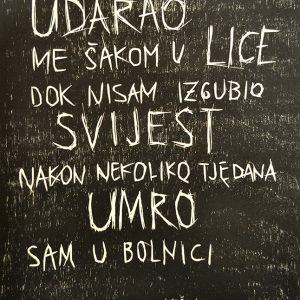 UDARAO
ME ŠAKOM U LICE
DOK NISAM IZGUBIO
SVIJEST
NAKON NEKOLIKO TJEDANA
UMRO
SAM U BOLNICI